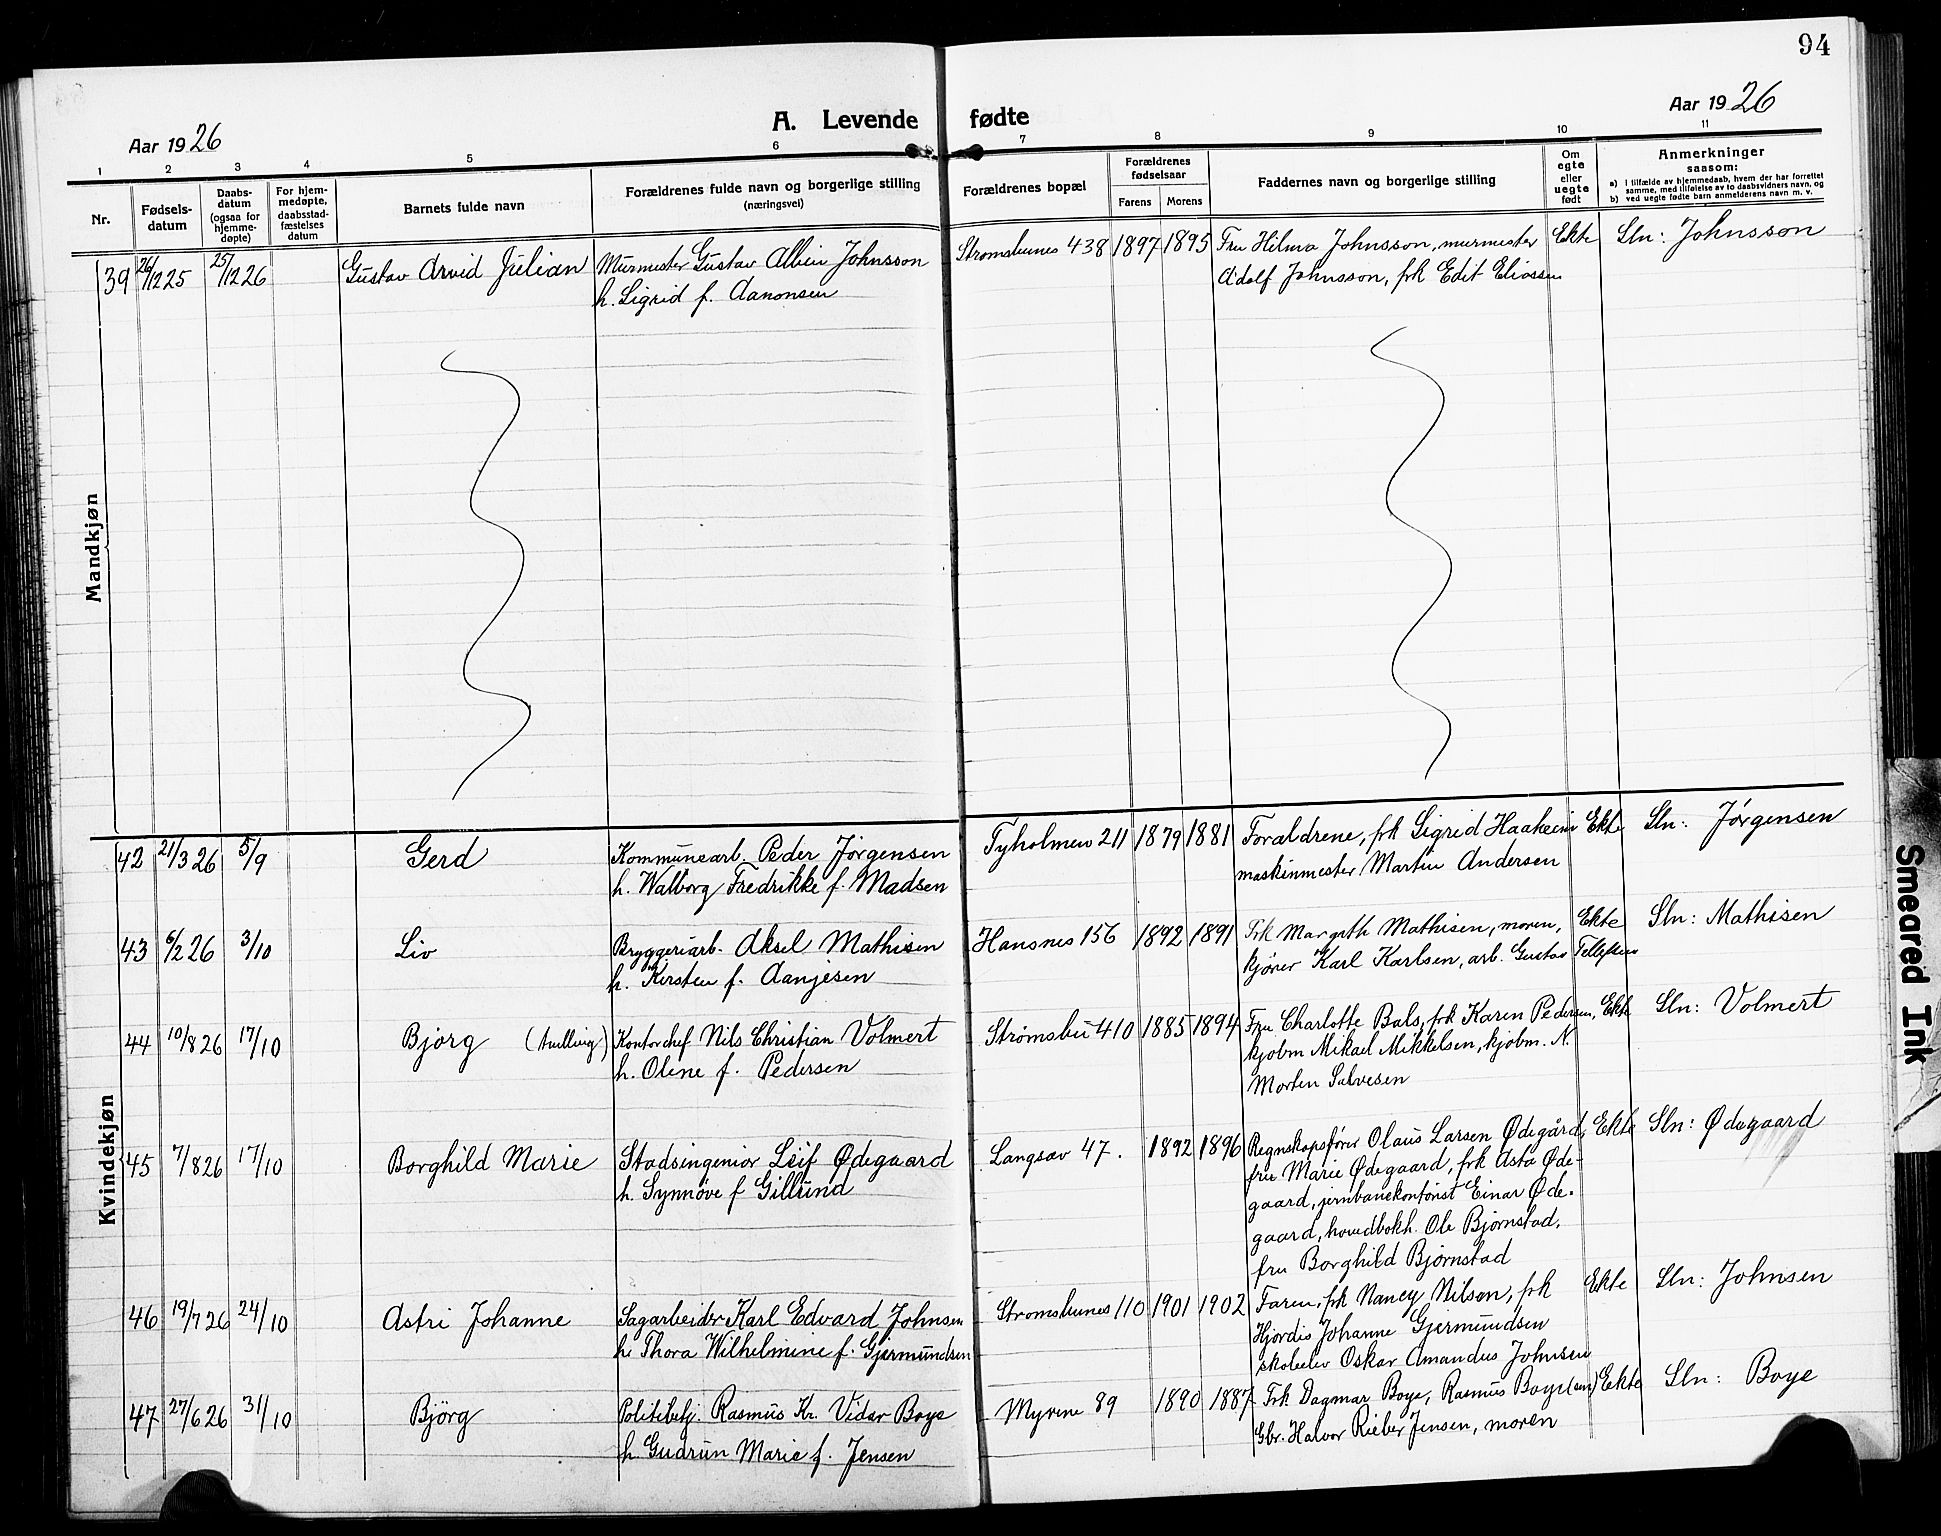 94
Aar 1926
A. Levende fødte
Aar 1926
1 2 3 4 5 6 7 8 9 10 11
Nr.
Fødsels-
datum
Daabs-
datum
(ogsaa for
hjemme-
døpte)
For hjem-
medøpte,
daabsstad-
fæstelses
datum
Barnets fulde navn
Forældrenes fulde navn og borgerlige stilling
(næringsvei)
Forældrenes bopæl
Forældrenes
fødselsaar
Farens Morens
Faddernes navn og borgerlige stilling
Om
egte
eller
uegte
født
Anmerkninger
saasom:
a) i tilfælde av hjemmedaab, hvem der har forrettet
samme, med tilføielse av to daabsvidners navn, og
b) ved uegte fødte barn anmelderens navn m. v.
Mandkjøn
39 26/12 25 25/12 26 Gustav Arvid Julian Murmester Gustav Albin Johnsson Strømsbunes 438 1897 1895 Fru Hilma Johnsson, murmester Ekte Sln: Johnsson
h. Sigrid f. Aanonsen Adolf Johnsson, frk Edit Eliassen
Kvindekjøn
42 21/3 26 5/9 Gerd Kommunearb. Peder Jørgensen Tyholmen 211 1879 1881 Foraldrene, frk Sigrid Haaheim Ekte Sln: Jørgensen
h. Walborg Fredrikke f. Madsen maskinmester Martin Andersen
43 6/2 26 3/10 Liv Bryggeriarb. Aksel Mathisen Hansnes 156 1892 1891 Frk Margith Mathisen, moren, Ekte Sln: Mathisen
h. Kirsten f. Aanjesen kjører Karl Karlsen, arb. Gustav Tellefsen
44 10/8 26 17/10 Bjørg (tvilling) Kontorchef Nils Christian Volmert Strømsbu 410 1885 1894 Fru Charlotte Bals, frk Karen Pedersen, Ekte Sln: Volmert
h. Olene f. Pedersen kjøbm Mikael Mikkelsen, kjøbm. N.
Morten Salvesen
45 7/8 26 17/10 Borghild Marie Stadsingeniør Leif Ødegaard Langsæv 47. 1892 1896 Regnskapsfører Olaus Larsen Ødegård, Ekte Sln: Ødegaard
h. Synnøve f Gillund fru Marie Ødegaard, frk Asta Øde-
gaard, jernbanekontorist Einar Øde-
gaard, hovedbokh. Ole Bjørnstad,
fru Borghild Bjørnstad
46 19/7 26 24/10 Astri Johanne Sagarbeider Karl Edvard Johnsen Strømsbunes 110 1901 1902 Faren, frk Nancy Nilsen, frk Ekte Sln: Johnsen
h Thora Wilhelmine f. Gjermundsen Hjørdis Johanne Gjermundsen
skoleelev Oskar Amandus Johnsen
47 27/6 26 31/10 Bjørg Politibetj. Rasmus Kr. Vidar Boye Myrene 89 1890 1887 Frk Dagmar Boye, Rasmus Boye (sen) Ekte Sln: Boye
h. Gudrun Marie f. Jensen Gbr. Halvor Rieber Jensen, moren
Smeared Ink